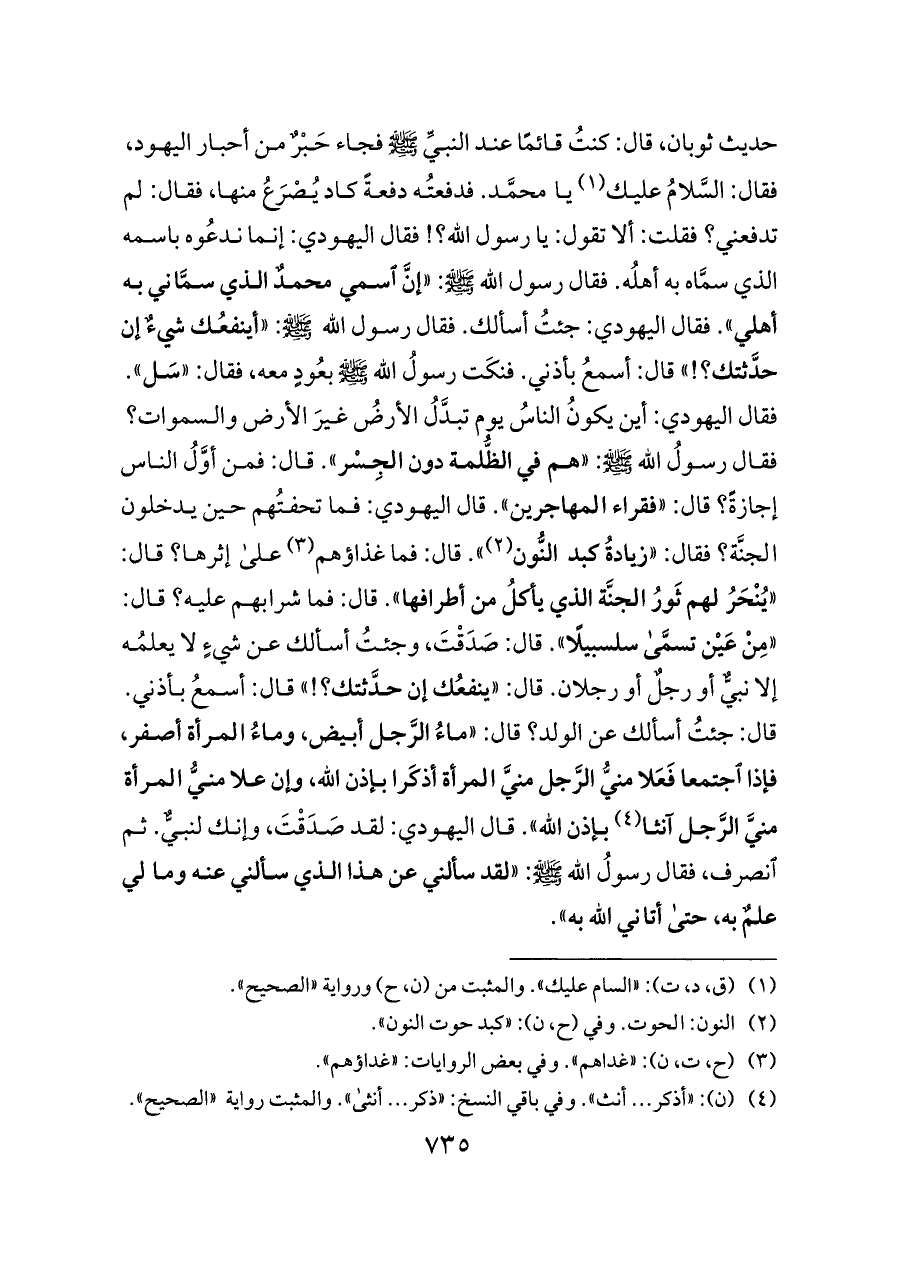 حديث ثوبان، قال: كنتُ قائمًا عند النبيِّ ﷺ فجاء حَبْرٌ من أحبار اليهود،
فقال: السَّلامُ عليك(١) يا محمَّد. فدفعتُه دفعةً كاد يُصْرَعُ منها، فقال: لم
تدفعني؟ فقلت: ألا تقول: يا رسول الله؟! فقال اليهودي: إنما ندعُوه باسمه
الذي سمَّاه به أهلُه. فقال رسول الله ﷺ: «إنَّ ٱسمي محمدٌ الذي سمَّاني به
أهلي». فقال اليهودي: جئتُ أسألك. فقال رسول الله ﷺ: «أينفعُك شيءٌ إن
حدَّثتك؟!» قال: أسمعُ بأذني. فنكَت رسولُ الله ﷺ بعُودٍ معه، فقال: «سَل».
فقال اليهودي: أين يكونُ الناسُ يوم تبدَّلُ الأرضُ غيرَ الأرض والسموات؟
فقال رسولُ الله ﷺ: «هم في الظُّلمة دون الجِسْر». قال: فمن أوَّلُ الناس
إجازةً؟ قال: «فقراء المهاجرين». قال اليهودي: فما تحفتُهم حين يدخلون
الجنَّة؟ فقال: «زيادةُ كبد النُّون(٢)». قال: فما غذاؤهم(٣) علىٰ إثرها؟ قال:
«يُنْحَرُ لهم ثَورُ الجنَّة الذي يأكلُ من أطرافها». قال: فما شرابهم عليه؟ قال:
«مِنْ عَيْن تسمَّىٰ سلسبيلًا». قال: صَدَقْتَ، وجئتُ أسألك عن شيءٍ لا يعلمُه
إلا نبيٌّ أو رجلٌ أو رجلان. قال: «ينفعُك إن حدَّثتك؟!» قال: أسمعُ بأذني.
قال: جئتُ أسألك عن الولد؟ قال: «ماءُ الرَّجل أبيض، وماءُ المرأة أصفر،
فإذا ٱجتمعا فَعَلا منيُّ الرَّجل منيَّ المرأة أذكَرا بإذن الله، وإن علا منيُّ المرأة
منيَّ الرَّجل آنثا(٤) بإذن الله». قال اليهودي: لقد صَدَقْتَ، وإنك لنبيٌّ. ثم
ٱنصرف، فقال رسولُ الله ﷺ: «لقد سألني عن هذا الذي سألني عنه وما لي
علمٌ به، حتىٰ أتاني الله به».
(١) (ق، د، ت): «السام عليك». والمثبت من (ن، ح) ورواية «الصحيح».
(٢) النون: الحوت. وفي (ح، ن): «كبد حوت النون».
(٣) (ح، ت، ن): «غداهم». وفي بعض الروايات: «غداؤهم».
(٤) (ن): «أذكر... أنث». وفي باقي النسخ: «ذكر... أنثىٰ». والمثبت رواية «الصحيح».
٧٣٥